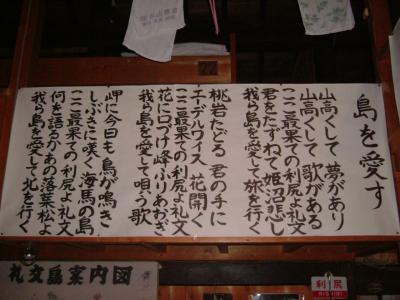 島を愛す
山高くして 夢があり
山高くして 歌がある
ここ最果ての利尻よ礼文
君をたずねて姫沼悲し
我ら島を愛して旅を行く
桃岩たどる 君の手に
エーデルワイス 花開く
ここ最果ての利尻よ礼文
花に口づけ峰ふりあおぎ
我ら島を愛して唄う歌
岬に今日も 鳥が鳴き
しぶきに咲く 海馬の島
ここ最果ての利尻よ礼文
何を語るかあの落葉松よ
我ら島を愛して北を行く
礼文島案内図
利尻